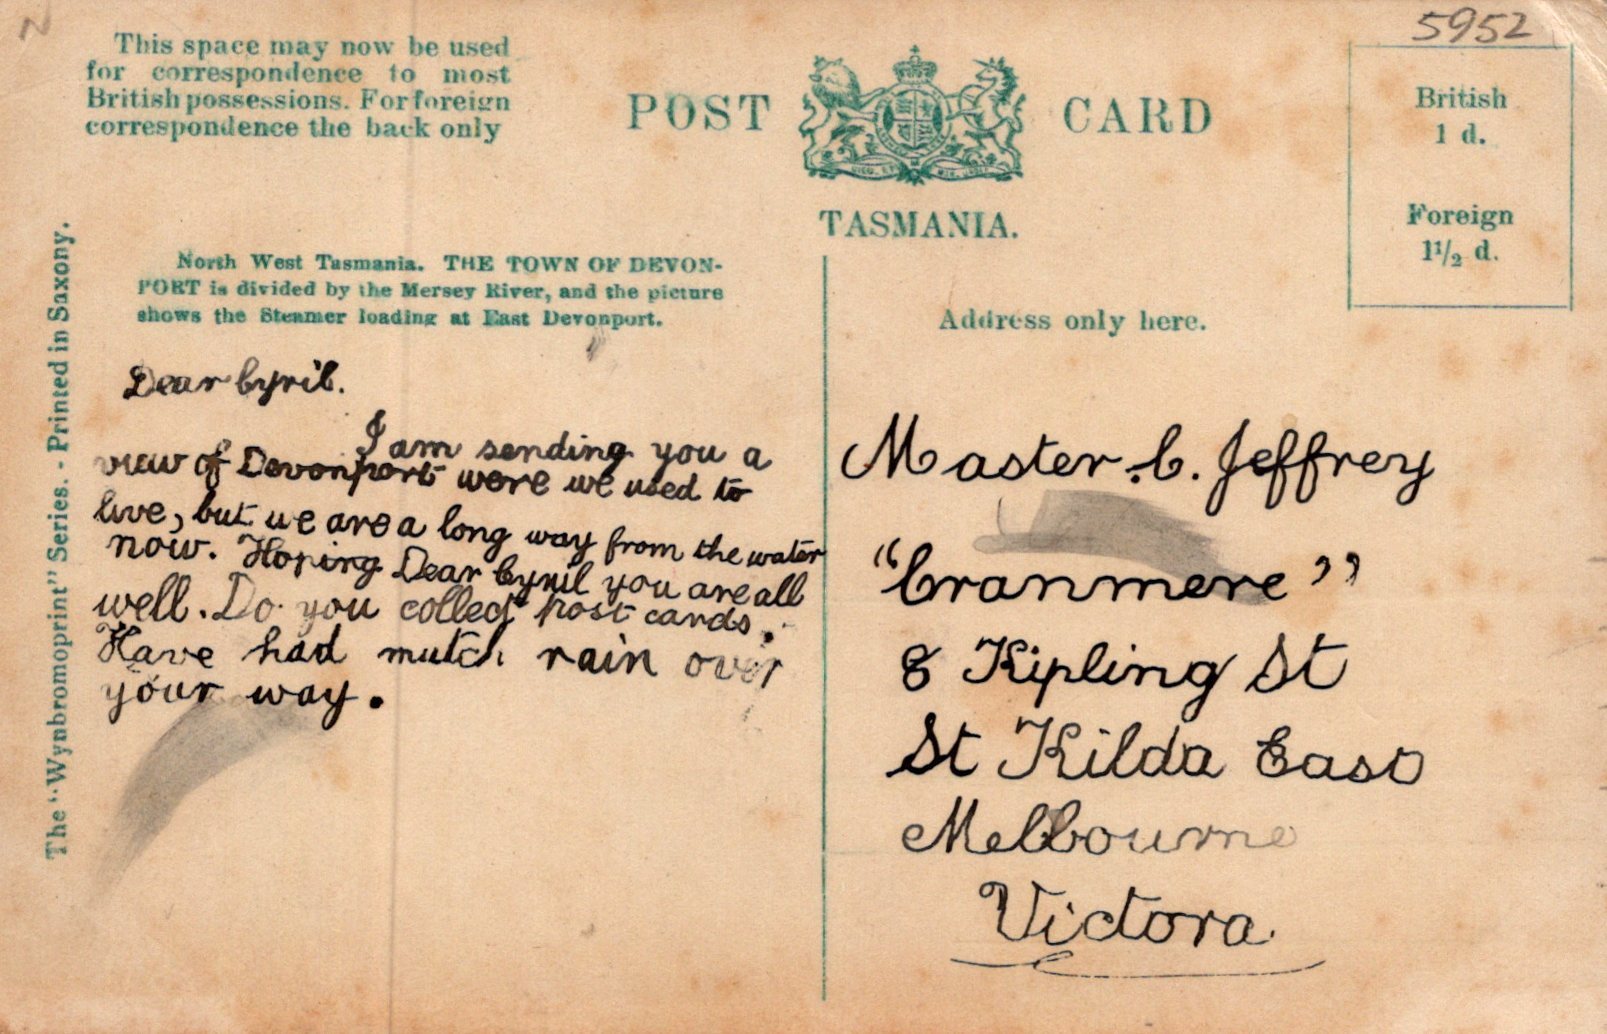 N
5952
This space may now be used
for correspondence to most
British possessions. For foreign
correspondence the back only
POST CARD
TASMANIA.
British
1 d.
Foreign
1 1/2 d.
The "Wynbromoprint" Series. - Printed in Saxony.
North West Tasmania. THE TOWN OF DEVON-
PORT is divided by the Mersey River, and the picture
shows the Steamer loading at East Devonport.
Address only here.
Dear Cyril.
I am sending you a
view of Devonport were we used to
live, but we are a long way from the water
now. Hoping Dear Cyril you are all
well. Do you collect post cards.
Have had mutch rain over
your way.
Master. C. Jeffrey
"Cranmere"
8 Kipling St
St Kilda East
Melbourne
Victora